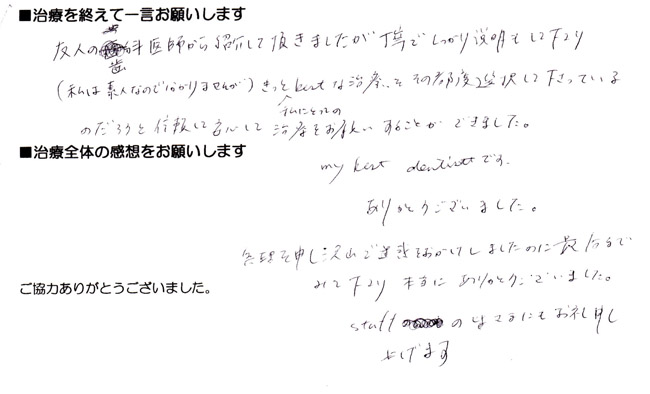 ■治療を終えて一言お願いします
友人の歯科医師から紹介して頂きましたが丁寧でしっかり説明もして下り
(私は素人なので分かりませんが)きっとbestな治療をその都度選択して下さっている
私にとっての
のだろうと信頼して安心して治療をお願いすることができました。
■治療全体の感想をお願いします
my best dentistです。
ありがとうございました。
無理を申し沢山ご迷惑をおかけしましたのに最后まで
みて下り本当にありがとうございました。
ご協力ありがとうございました。
staffの皆さまにもお礼申し
上げます